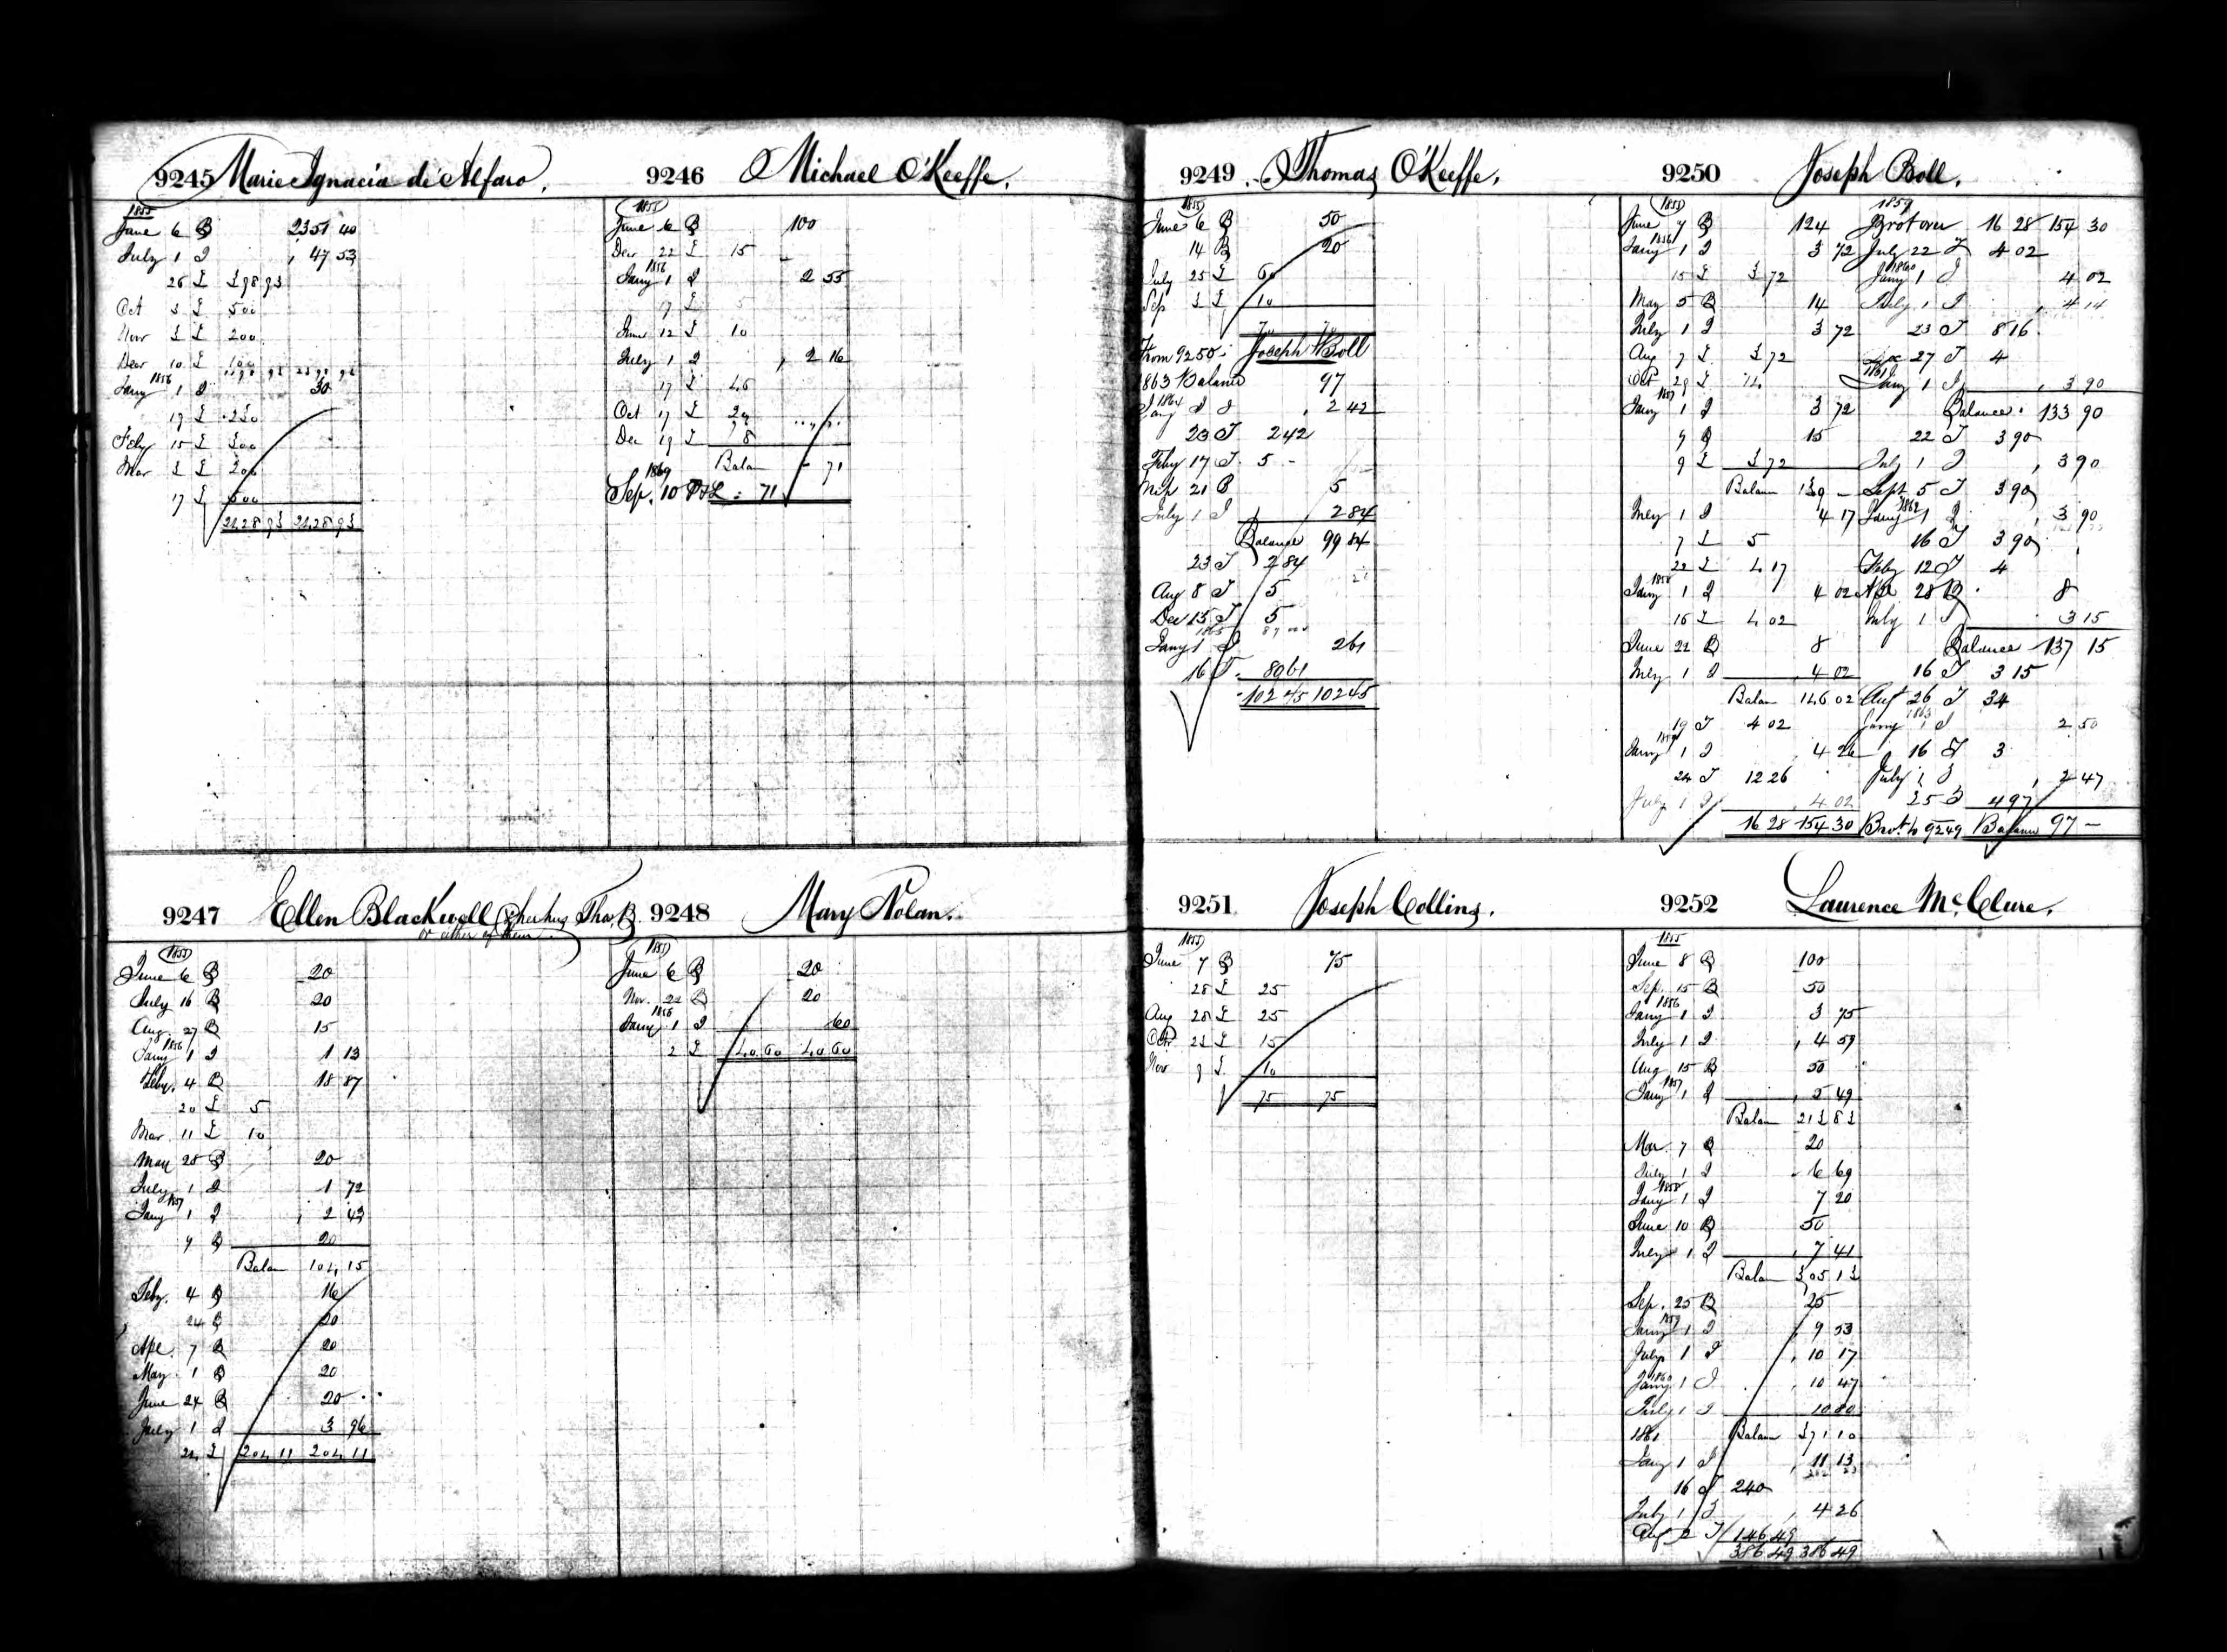 9245 Marie Ignacia de Alfaro.
1855
June 6 B 2351 40
July 1 I 47 53
26 £ 398 93
Oct 3 £ 500
Nov 3 £ 200
Decr 10 £ 100
Jany 1856 1 I 30
19 £ 230
Feby 15 £ 300
Mar 3 £ 200
17 £ 500
2428 93 2428 93
9246 Michael O'Keeffe.
1855
June 6 B 100
Decr 22 £ 15
Jany 1856 1 I 2 55
17 £ 5
June 12 £ 10
July 1 I 2 16
17 £
Oct 17 £
Dec 19 £ 8
Balan 71
1869
Sep. 10 71
9247 Ellen Blackwell or her hus Thos. B.
or either of them
1855
June 6 B 20
July 16 B 20
Aug. 27 B 15
Jany 1856 1 I 1 13
Feby. 4 B 18 87
20 £ 5
Mar. 11 £ 10
May 28 B 20
July 1 I 1 72
Jany 1857 1 I 2 43
9 B 20
Balan 104 15
Feby. 4 B 16
24 B 20
Apl. 7 B 20
May 1 B 20
June 24 B 20
July 1 I 3 96
22 £ 204 11 204 11
9248 Mary Nolan.
1855
June 6 B 20
Nov. 22 B 20
Jany 1856 1 I 60
2 £ 40 60 40 60
9249 Thomas O'Keeffe.
1855
June 6 B 50
14 B 20
July 25 £ 60
Sep 3 £ 10
70 70
From 9250 Joseph Boll
1863 Balance 97
Jany 1864 1 I 2 42
23 T 2 42
Feby 17 T 5 -
Mch 21 B 5
July 1 I 2 84
Balance 99 84
23 T 2 84
Aug 8 T 5
Dec 15 T 5
Jany 1865 1 I 2 61
16 T 89 61
102 45 102 45
9250 Joseph Boll.
1855
June 7 B 124
Jany 1856 1 I 3 72
15 £ 3 72
May 5 B 14
July 1 I 3 72
Aug 7 £ 3 72
Oct 29 £ 14
Jany 1857 1 I 3 72
9 B 15
9 £ 3 72
Balan 139 -
July 1 I 4 17
7 £ 5
22 £ 4 17
Jany 1858 1 I 4 02
16 £ 4 02
June 22 B 8
July 1 I 4 02
Balan 146 02
19 T 4 02
Jany 1859 1 I 4 26
24 T 12 26
July 1 I 4 02
16 28 154 30
1859
Brot over 16 28 154 30
July 22 T 4 02
Jany 1860 1 I 4 02
July 1 I 4 14
23 T 8 16
Dec 27 T 4
1861
Jany 1 I 3 90
Balance 133 90
22 T 3 90
July 1 I 3 90
Sept 5 T 3 90
Jany 1862 1 I 3 90
16 T 3 90
Feby 12 T 4
Apl 28 B 8
July 1 I 3 15
Balance 137 15
16 T 3 15
Aug 26 T 34
Jany 1863 1 I 2 50
16 T 3
July 1 I 2 47
25 T 4 97
Brot. to 9249 Balance 97 -
9251 Joseph Collins.
1855
June 7 B 75
28 £ 25
Aug 28 £ 25
Octr 22 £ 15
Nov 9 £ 10
75 75
9252 Laurence McClure.
1855
June 8 B 100
Sep. 15 B 50
Jany 1856 1 I 3 75
July 1 I 4 59
Aug 15 B 50
Jany 1857 1 I 5 49
Balan 213 83
Mar. 7 B 20
July 1 I 6 69
Jany 1858 1 I 7 20
June 10 B 50
July 1 I 7 41
Balan 305 13
Sep. 25 B 25
Jany 1859 1 I 9 53
July 1 I 10 17
Jany 1860 1 I 10 47
July 1 I 10 80
1861 Balan 371 10
Jany 1 I 11 13
16 T 240
July 1 I 4 26
Aug 2 T 146 49
386 49 386 49